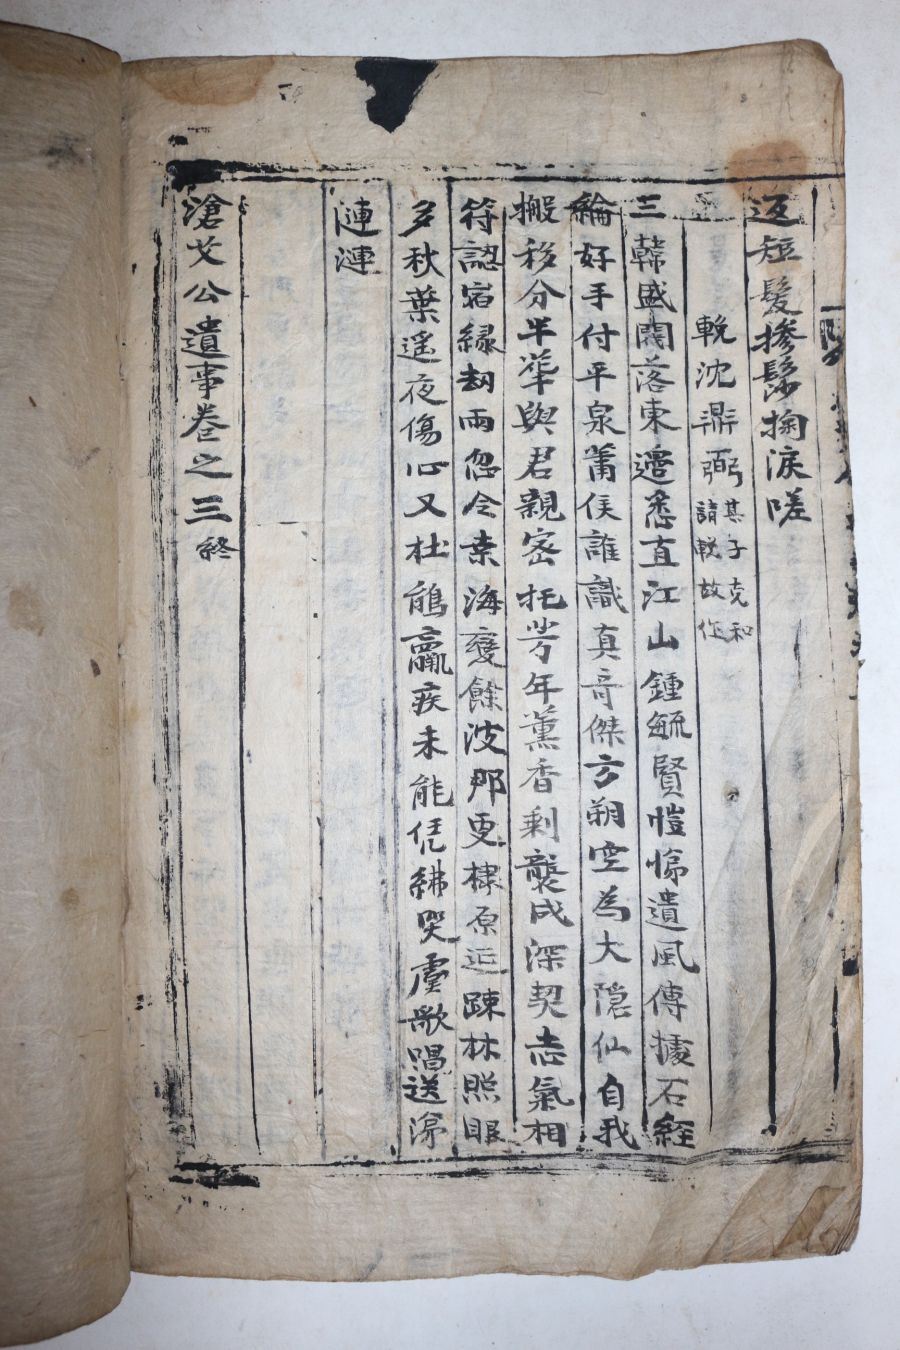 返短髮摻髿掬淚嗟
輓沈鼎弼其子克和請輓故作
三韓盛閥落東邊悉直江山鍾毓賢愷悌遺風傳據石經
綸好手付平泉蕭侯誰識真奇傑方朔空為大隐仙自我
搬移分半萍與君親密托芳年薰香剩襲成深契志氣相
符認宿緣劫雨忽令桑海變餘波那更棣原迍踈林照眼
多秋葉遥夜傷心又杜鵑羸疾未能凭紼哭虛歌唱送涕
漣漣
滄艾公遺事卷之三終